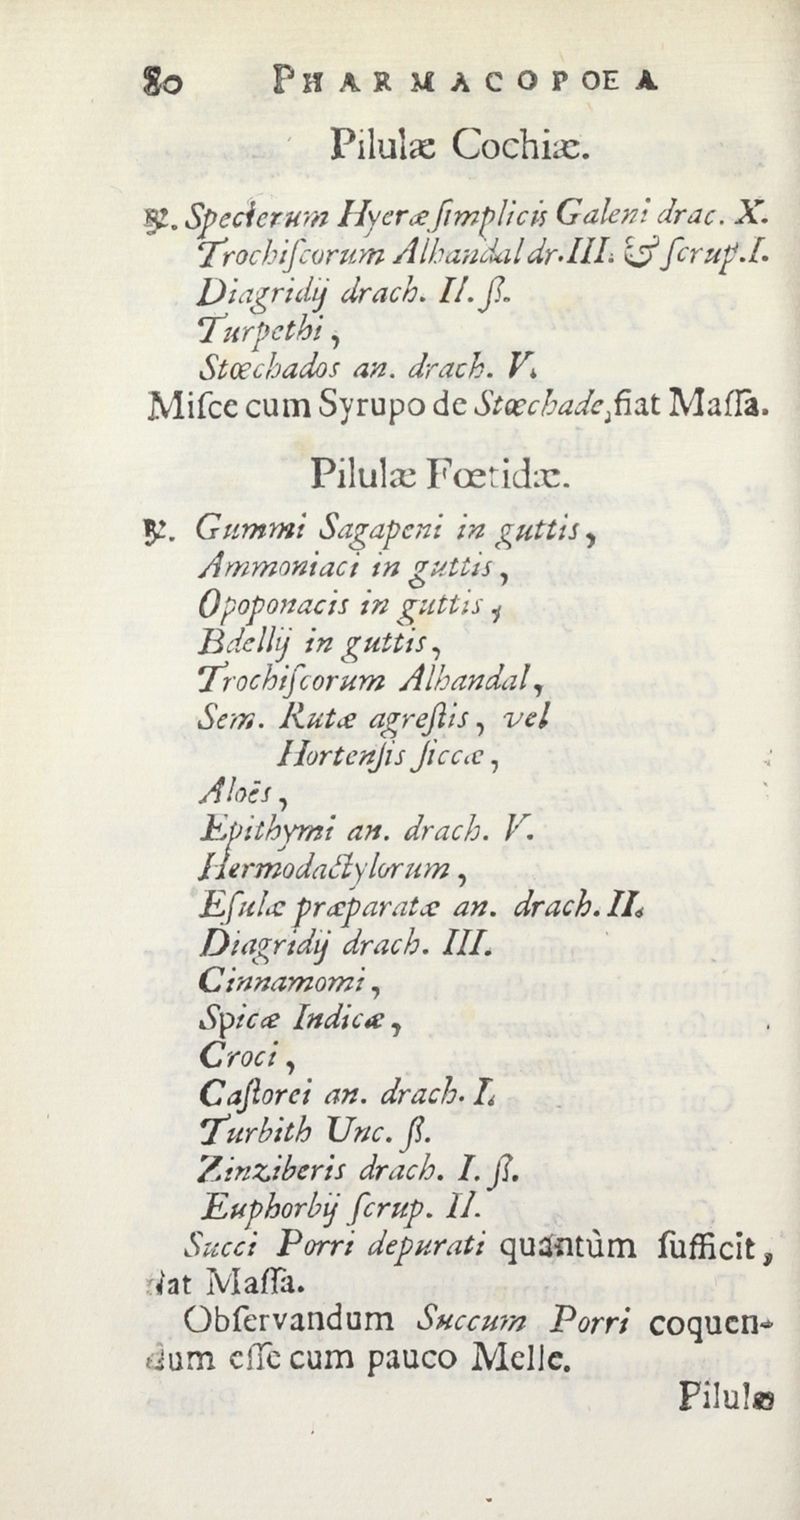 80 PHARMACOPOEA
Pilulæ Cochiæ.
℞. Specierum Hyeræ ſimplicis Galeni drac. X.
Trochiſcorum Alhandal dr. III. & ſcrup. I.
Diagridij drach. II. ß.
Turpethi,
Stœchados an. drach. V.
Miſce cum Syrupo de Stœchade, fiat Maſſa.
Pilulæ Fœtidæ.
℞. Gummi Sagapeni in guttis,
Ammoniaci in guttis,
Opoponacis in guttis,
Bdellij in guttis,
Trochiſcorum Alhandal,
Sem. Rutæ agreſtis, vel
Hortenſis ſiccæ,
Aloës,
Epithymi an. drach. V.
Hermodactylorum,
Eſulæ præparatæ an. drach. II.
Diagridij drach. III.
Cinnamomi,
Spicæ Indicæ,
Croci,
Caſtorei an. drach. I.
Turbith Unc. ß.
Zinziberis drach. I. ß.
Euphorbij ſcrup. II.
Succi Porri depurati quantùm ſufficit,
fiat Maſſa.
Obſervandum Succum Porri coquen-
dum eſſe cum pauco Melle.
Pilulæ